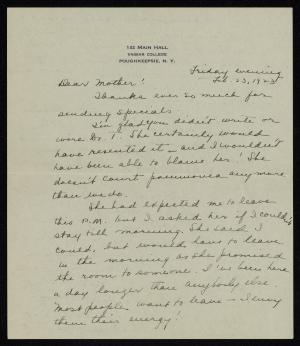 122 MAIN HALL
VASSAR COLLEGE
POUGHKEEPSIE, N. Y.
Friday evening
Feb. 23, 1923
Dear Mother!
Thanks ever so much for
sending specials.
I'm glad you didn't write or
wire Dr. T. She certainly would
have resented it – and I wouldn't
have been able to blame her! She
doesn't court pneumonia any more
than we do.
She had expected me to leave
this P.M. but I asked her if I couldn't
stay till morning. She said I
could, but would have to leave
in the morning as she promised
the room to someone. I've been here
a day longer than anybody else.
Most people want to leave – I envy
them their energy!